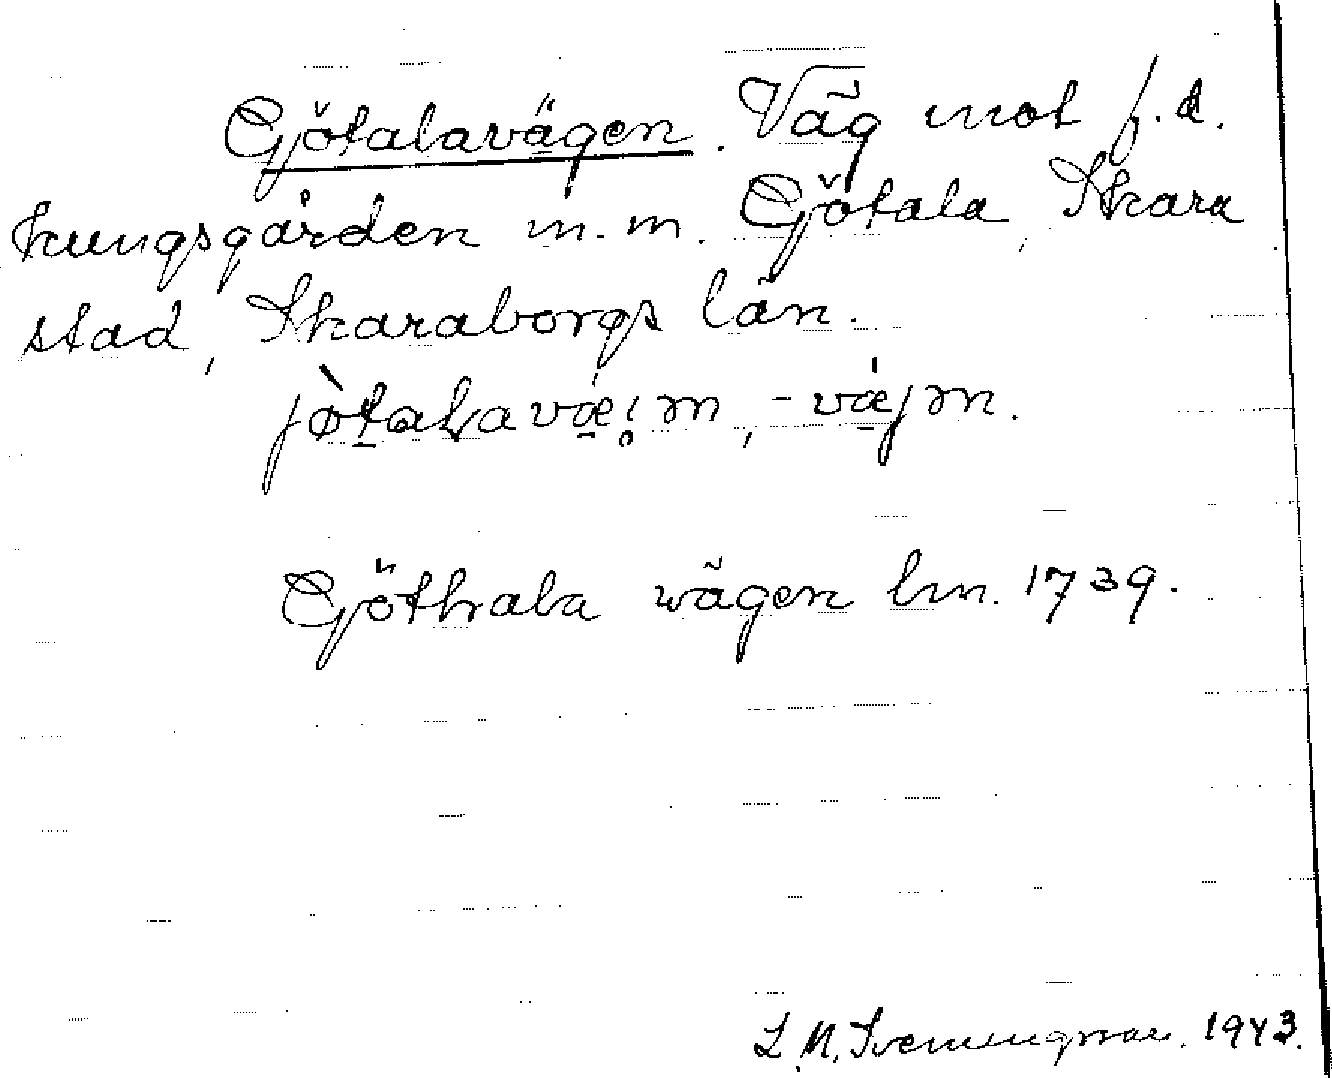 Götalavägen. Väg mot f.d.
kungsgården m.m. Götala, Skara
stad, Skaraborgs län.
jòtalavæ̀i̥m, -væ̀jm.
Göthala wägen lm. 1739.
1943.